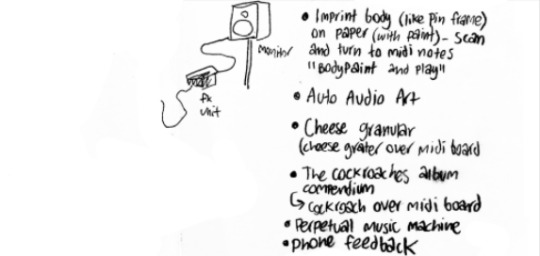 monitor
fx
unit
• Imprint body (like pin frame)
on paper (with paint) - scan
and turn to midi notes
"BodyPaint and Play"
• Auto Audio Art
• Cheese granular
(cheese grater over midi board
• The cockroaches album
compendium
↳ cockroach over midi board
• Perpetual music machine
• Phone feedback